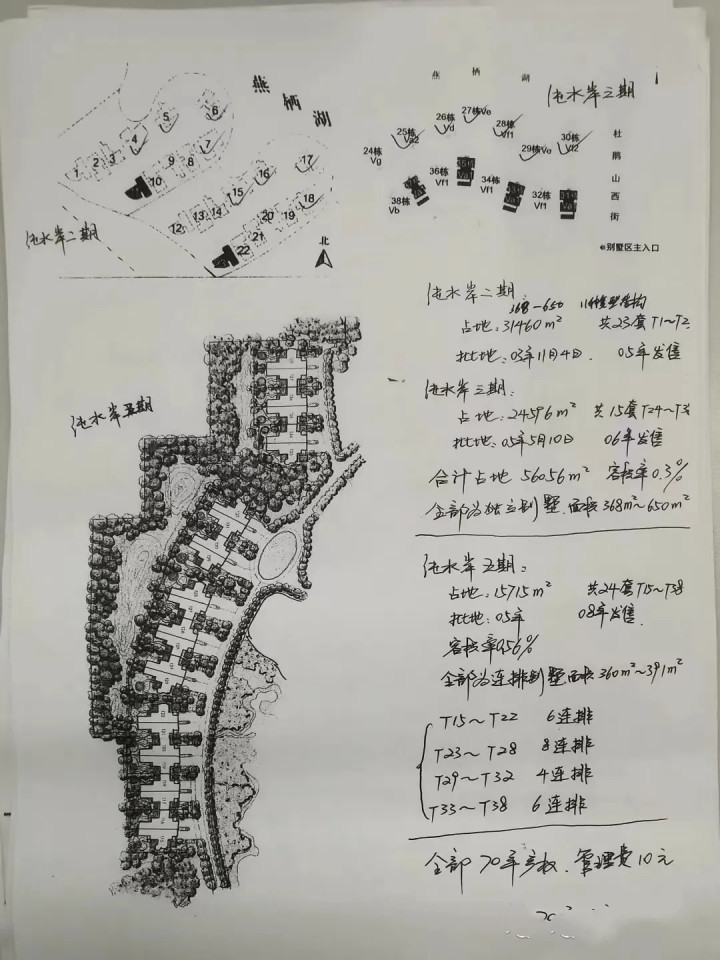 燕栖湖
1
2
3
4
5
6
7
8
9
10
12
13
14
15
16
17
18
19
20
21
22
北
纯水岸二期
燕 栖 湖
纯水岸三期
24栋 Vg
25栋 Va2
26栋 Vd
27栋Ve
28栋 Vf1
29栋Ve
30栋 Vf2
38栋 Vb
36栋 Vf1
34栋 Vf1
32栋 Vf1
杜鹃山西街
别墅区主入口
纯水岸二期:
368-650
占地:31460m² 共23套 T1~T2
批地:03年11月4日. 05年发售
纯水岸三期:
占地:24596m² 共15套T24~T3
批地:05年5月10日 06年发售
合计占地 56056m² 容积率0.3%
全部为独立别墅.面积368m²~650m²
纯水岸五期
纯水岸五期:
占地:15715m² 共24套T15~T38
批地:05年 08年发售.
容积率0.56%
全部为连排别墅面积360m²~391m²
T15~T22 6连排
T23~T28 8连排
T29~T32 4连排
T33~T38 6连排
全部70年产权.管理费10元